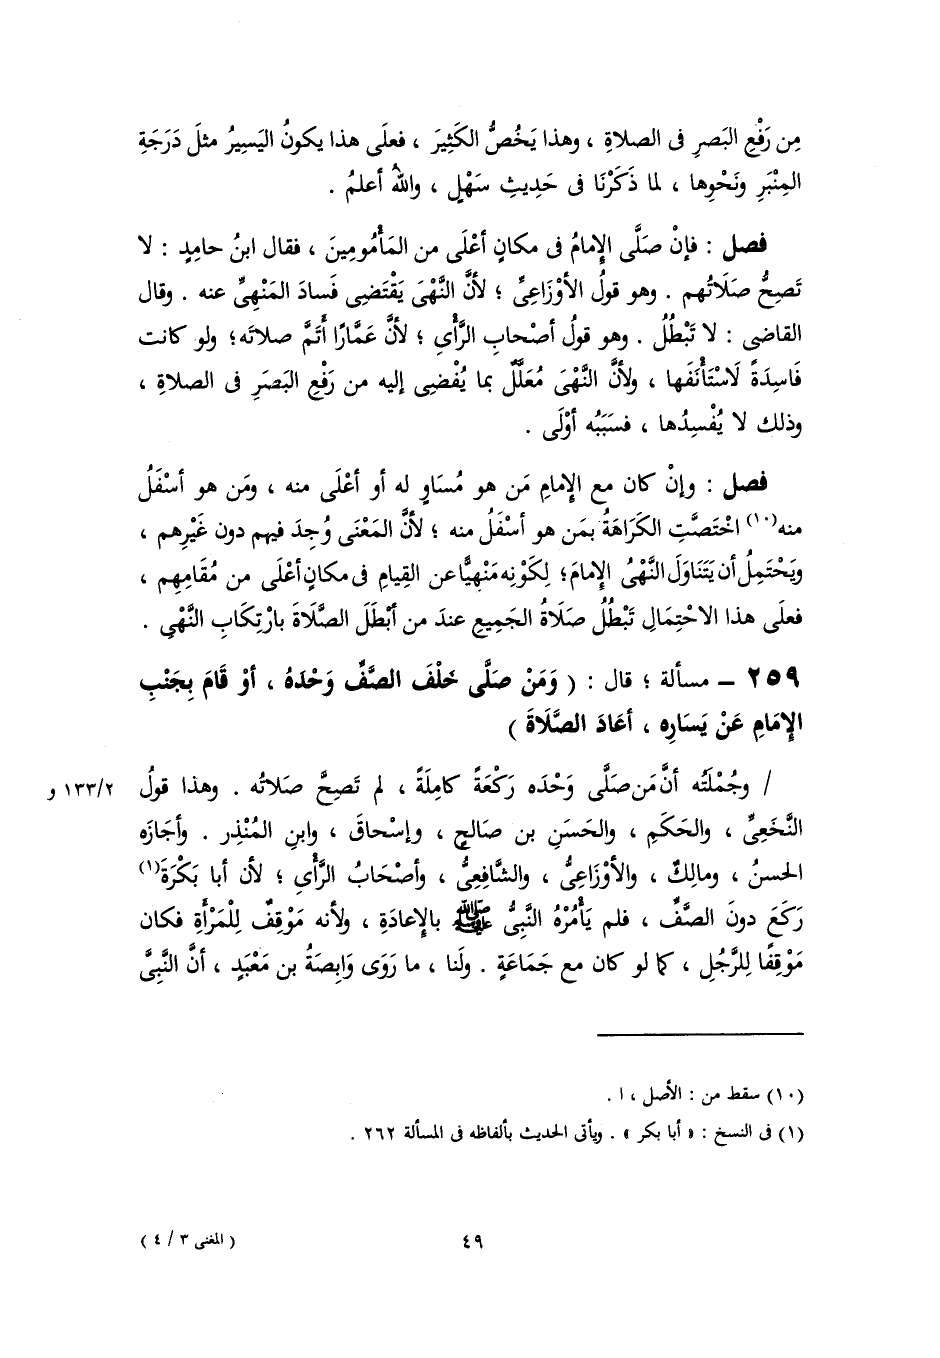 مِن رَفْعِ البَصرِ فى الصلاةِ ، وهذا يَخُصُّ الكَثِيرَ ، فعلَى هذا يكونُ اليَسِيرُ مثلَ دَرَجَةِ
المِنْبَرِ ونَحْوِها ، لما ذَكَرْنَا فى حَدِيثِ سَهْلٍ ، واللهُ أعلمُ .
فصل : فإنْ صَلَّى الإِمامُ فى مكانٍ أعْلَى من المَأْمُومِينَ ، فقال ابنُ حامِدٍ : لا
تَصِحُّ صَلَاتُهم . وهو قولُ الأوْزَاعِىِّ ؛ لأنَّ النَّهْىَ يَقْتَضِى فَسادَ المَنْهِىِّ عنه . وقال
القاضى : لا تَبْطُلُ . وهو قولُ أصْحابِ الرَّأْىِ ؛ لأنَّ عَمَّارًا أتَمَّ صلاتَه؛ ولو كانت
فَاسِدَةً لَاسْتَأْنَفَها ، ولأنَّ النَّهْىَ مُعَلَّلٌ بما يُفْضِى إليه من رَفْعِ البَصَرِ فى الصلاةِ ،
وذلك لا يُفْسِدُها ، فسَبَبُه أوْلَى .
فصل : وإنْ كان مع الإِمامِ مَن هو مُسَاوٍ له أو أعْلَى منه ، ومَن هو أسْفَلُ
منه(١٠) اخْتَصَّتِ الكَرَاهَةُ بمَن هو أسْفَلُ منه ؛ لأنَّ المَعْنَى وُجِدَ فيهم دون غَيْرِهم ،
ويَحْتَمِلُ أن يَتَنَاوَلَ النَّهْىُ الإِمامَ؛ لِكَوْنِه مَنْهِيًّا عن القِيامِ فى مكانٍ أعْلَى من مُقَامِهِم ،
فعلَى هذا الاحْتِمالِ تَبْطُلُ صَلَاةُ الجَمِيعِ عندَ من أبْطَلَ الصَّلَاةَ بارْتِكابِ النَّهْىِ .
٢٥٩ – مسألة ؛ قال : ( وَمَنْ صَلَّى خَلْفَ الصَّفِّ وَحْدَهُ ، أوْ قَامَ بِجَنْبِ
الإِمَامِ عَنْ يَسَارِه ، أعَادَ الصَّلَاةَ )
/ وجُمْلَتُه أنَّ مَن صَلَّى وَحْدَه رَكْعَةً كامِلَةً ، لم تَصِحَّ صَلاتُه . وهذا قولُ ١٣٣/٢ و
النَّخَعِىِّ ، والحَكَمِ ، والحَسَنِ بن صَالحٍ ، وإسْحاقَ ، وابنِ المُنْذِر . وأجازَه
الحسنُ ، ومالِكٌ ، والأوْزَاعِىُّ ، والشَّافِعِىُّ ، وأصْحَابُ الرَّأْىِ ؛ لأن أبا بَكْرَةَ(١)
رَكَعَ دونَ الصَّفِّ ، فلم يَأْمُرْهُ النَّبِىُّ ﷺ بالإِعادَةِ ، ولأنه مَوْقِفٌ لِلْمَرْأةِ فكان
مَوْقِفًا لِلرَّجُلِ ، كما لو كان مع جَمَاعَةٍ . ولَنا ، ما رَوَى وَابِصَةُ بن مَعْبَدٍ ، أنَّ النَّبِىَّ
(١٠) سقط من : الأصل ، ا .
(١) فى النسخ : « أبا بكر » . ويأتى الحديث بألفاظه فى المسألة ٢٦٢ .
٤٩
( المغنى ٣ / ٤ )